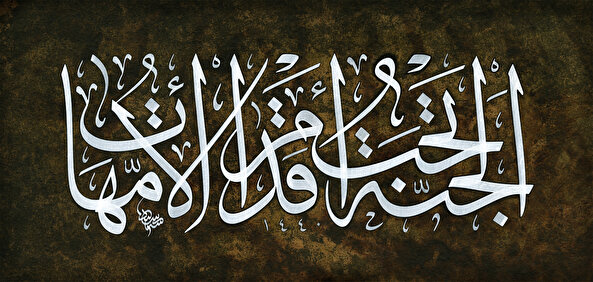 الجنّة تحت أقدام الأمّهات
١٤٤٠